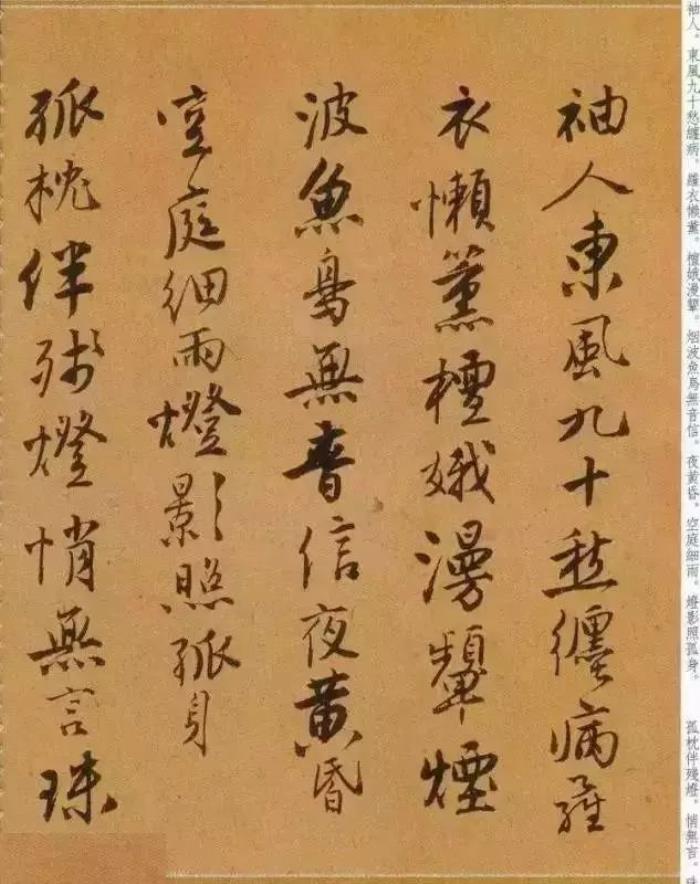 袖人東風九十愁纏病羅
衣懶薰檀娥漫顰煙
波魚鳥無音信夜黃昏
空庭細雨燈影照孤身
孤枕伴殘燈悄無言珠
袖人。東風九十愁纏病，羅衣懶薰，檀娥漫顰。烟波魚鳥無音信。夜黃昏。空庭細雨，燈影照孤身。 孤枕伴殘燈，悄無言。珠